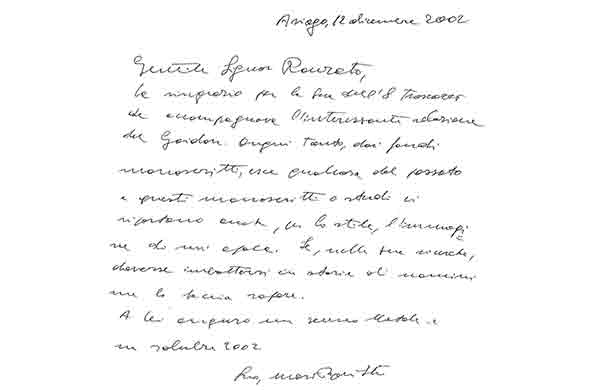 Asiago, 12 dicembre 2002
Gentile Signor Ronzato,
La ringrazio per la Sua dell'8 Trascorso
che accompagnava l'interessante relazione
del Ogni Tanto, dai fondi
manoscritti, esce qualcosa del passato
e questi manoscritti o studi ci
riportano anche, per lo stile, l'immagi
ne di un'epoca. Se, nelle Sue ricerche,
dovesse imbattersi in storie di uomini
me lo faccia sapere.
A Lei auguro un sereno Natale e
un salubre 2002
Suo,